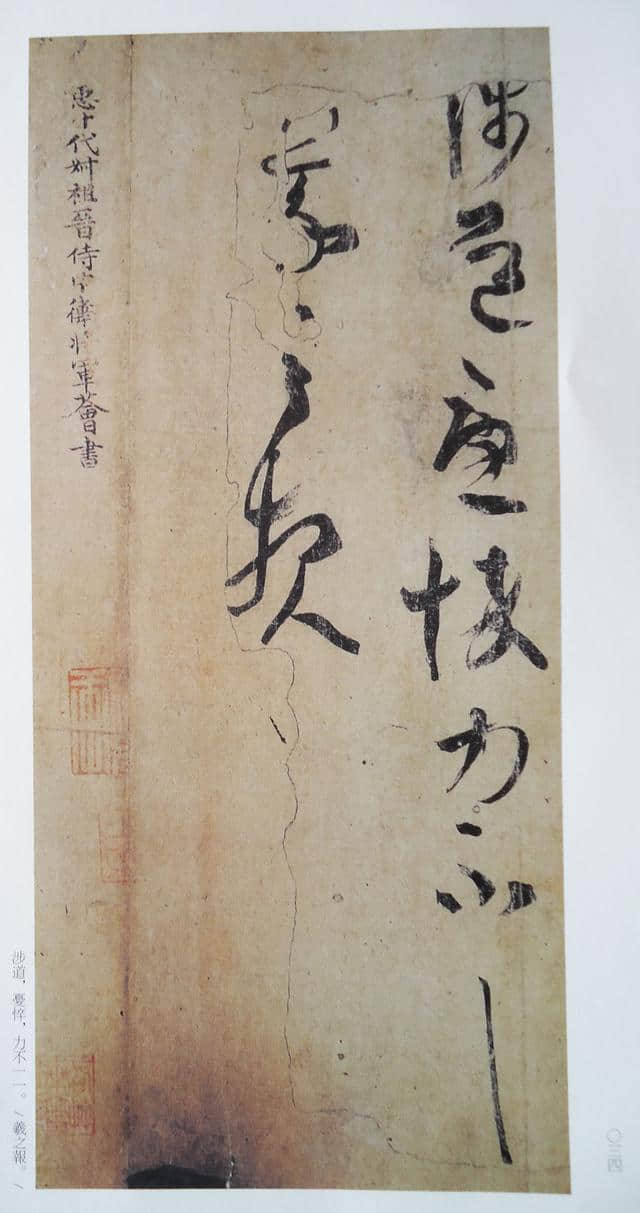 涉道憂悴力不一一
羲之報
𢘑十代叔祖晉侍中衛將軍薈書
涉道，憂悴，力不一一。/羲之報。/
〇三四